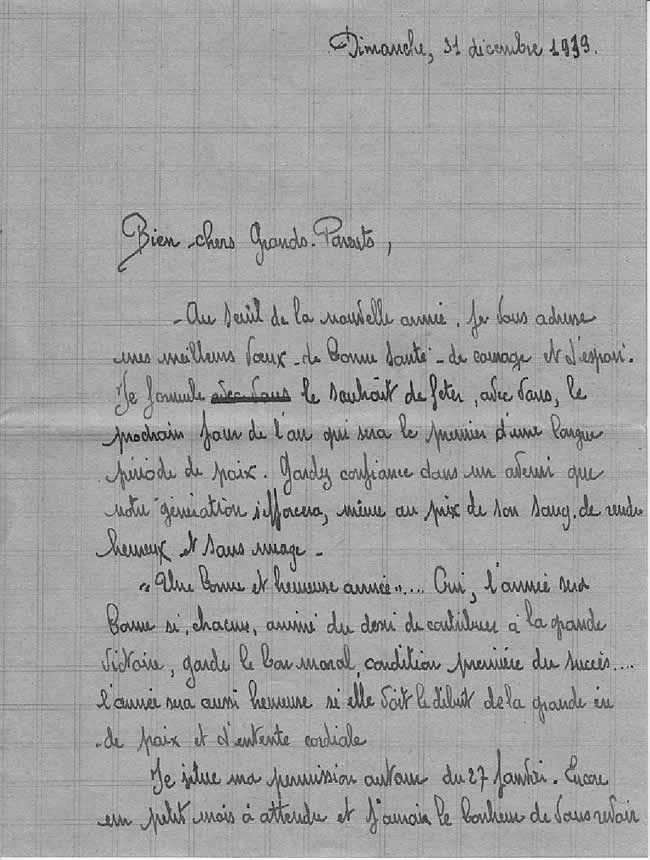 Dimanche, 31 décembre 1939.
Bien chers Grands-Parents,
- Au seuil de la nouvelle année, je vous adresse
mes meilleurs vœux - de bonne santé - de courage et d'espoir.
Je formule avec vous le souhait de fêter, avec vous, le
prochain jour de l'an qui sera le premier d'une longue
période de paix. Gardez confiance dans un avenir que
notre génération s'efforcera, même au prix de son sang, de rendre
heureux et sans nuage -
"Une bonne et heureuse année".... Oui, l'année sera
bonne si, chacun, animé du désir de contribuer à la grande
Victoire, garde le bon moral, condition première du succès....
l'année sera aussi heureuse si elle voit le début de la grande ère
- de paix et d'entente cordiale
Je situe ma permission autour du 27 Janvier. Encore
un petit mois à attendre et j'aurai le bonheur de vous revoir